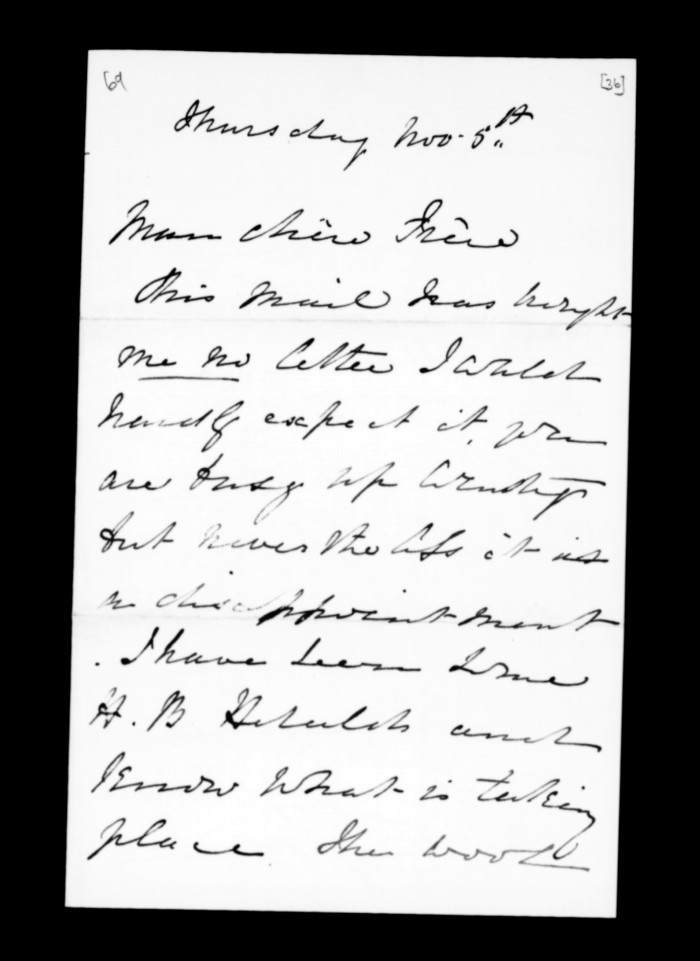 [69 [36]
Thursday Nov. 5th
Mon chère Frère
This Mail has brought
me no letter I could
hardly expect it, you
are busy up country
but never the less it is
a disappointment
. I have seen some
H. B Heralds and
know what is taking
place The wool